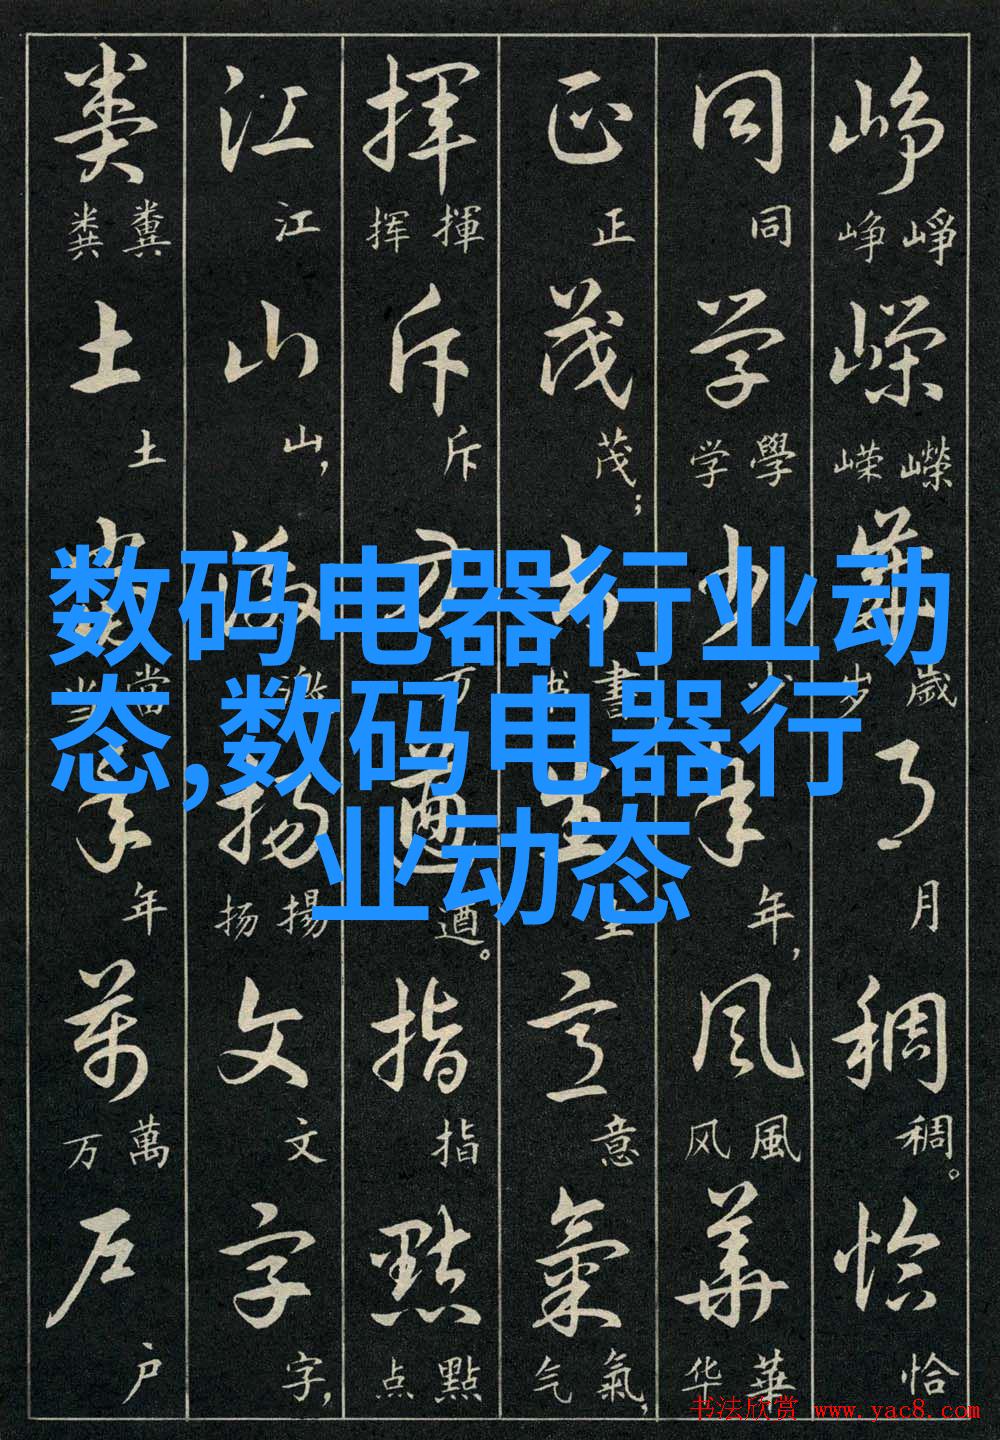 数码电器行业动
态,数码电器行
业动态
峥嵘岁月稠恰
崢嶸歲月稠。恰
峥嵘岁
同学少年风华
同學少年,風華
学风华
正茂书生意氣
正茂;書生意氣,
书气
挥斥方遒指點
揮斥方遒。指點
挥点
江山激扬文字
江山,激揚文字,
扬
粪土当年万户
糞土當年萬户
粪当万
书法欣赏 www.yac8.com